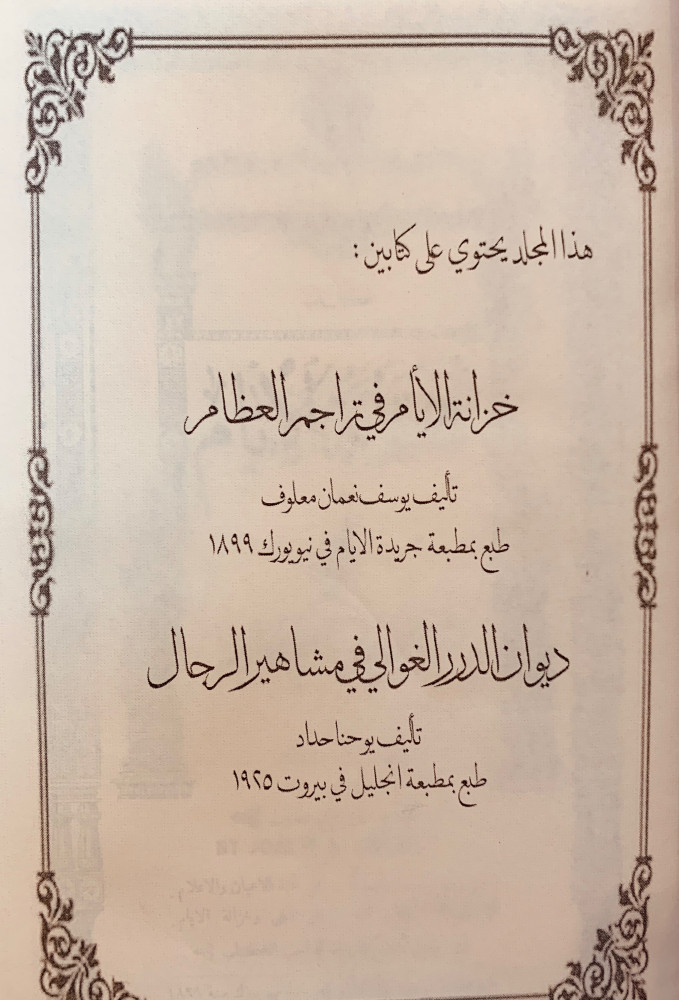 هذا المجلد يحتوي على كتابين :
خزانة الأيام في تراجم العظام
تأليف يوسف نعمان معلوف
طبع بمطبعة جريدة الايام في نيويورك ١٨٩٩
ديوان الدرر الغوالي في مشاهير الرجال
تأليف يوحنا حداد
طبع بمطبعة انجليل في بيروت ١٩٢٥